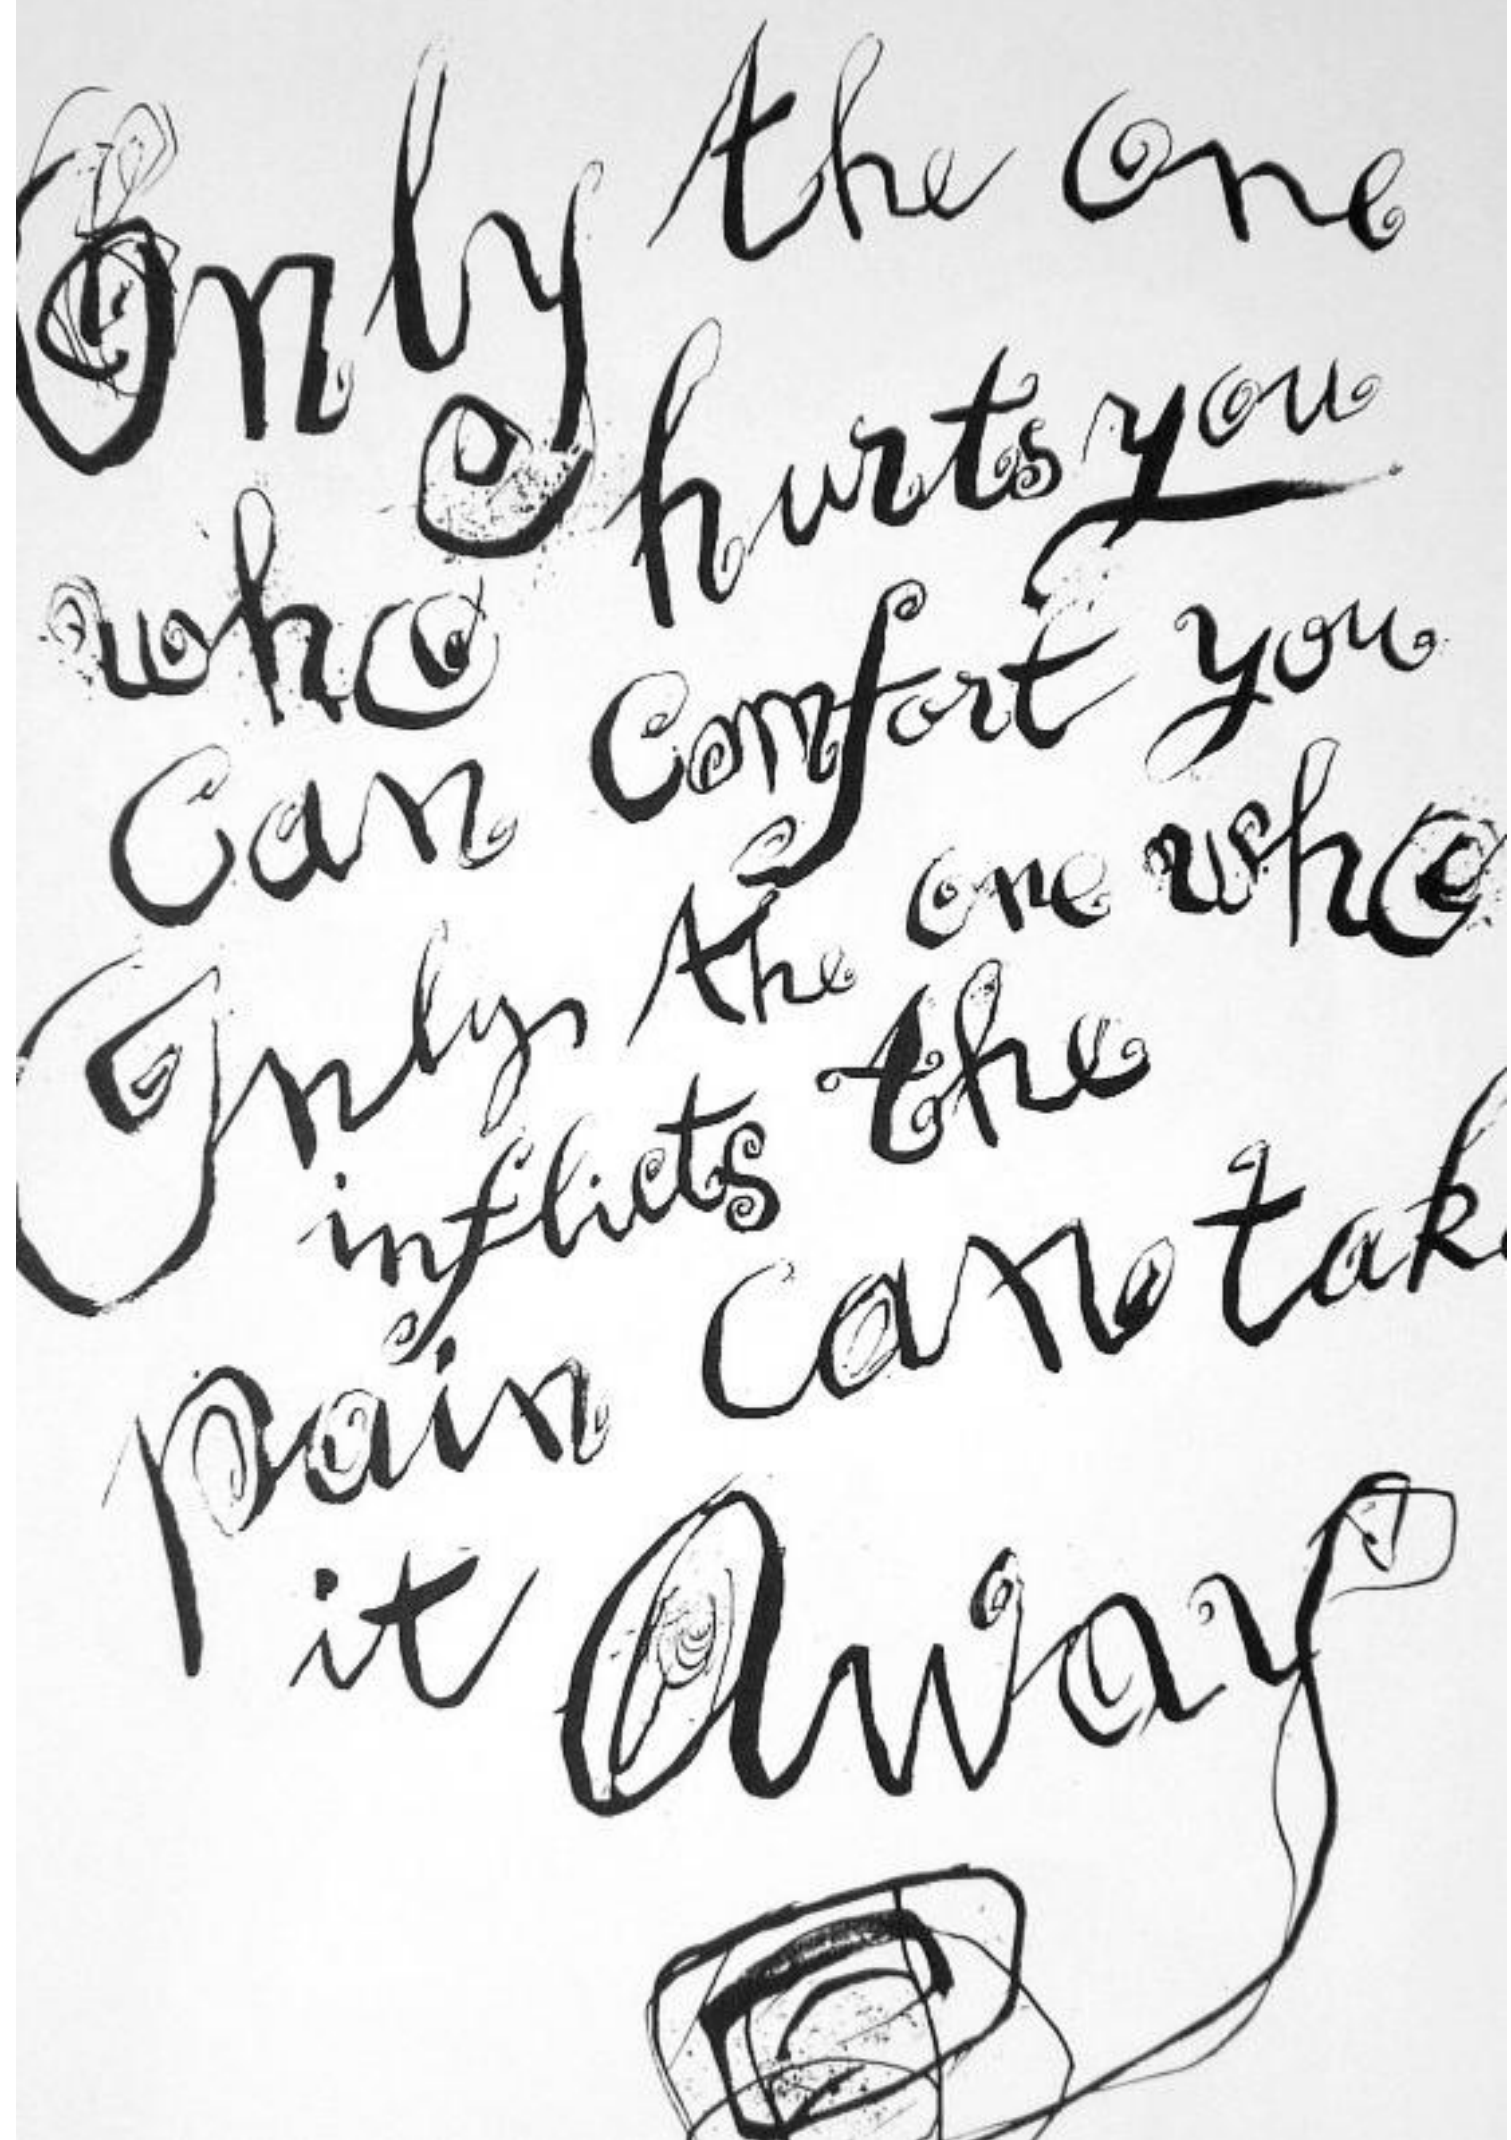 Only the one
who hurts you
Can Comfort you
Only the one who
inflicts the
pain Can take
it Away